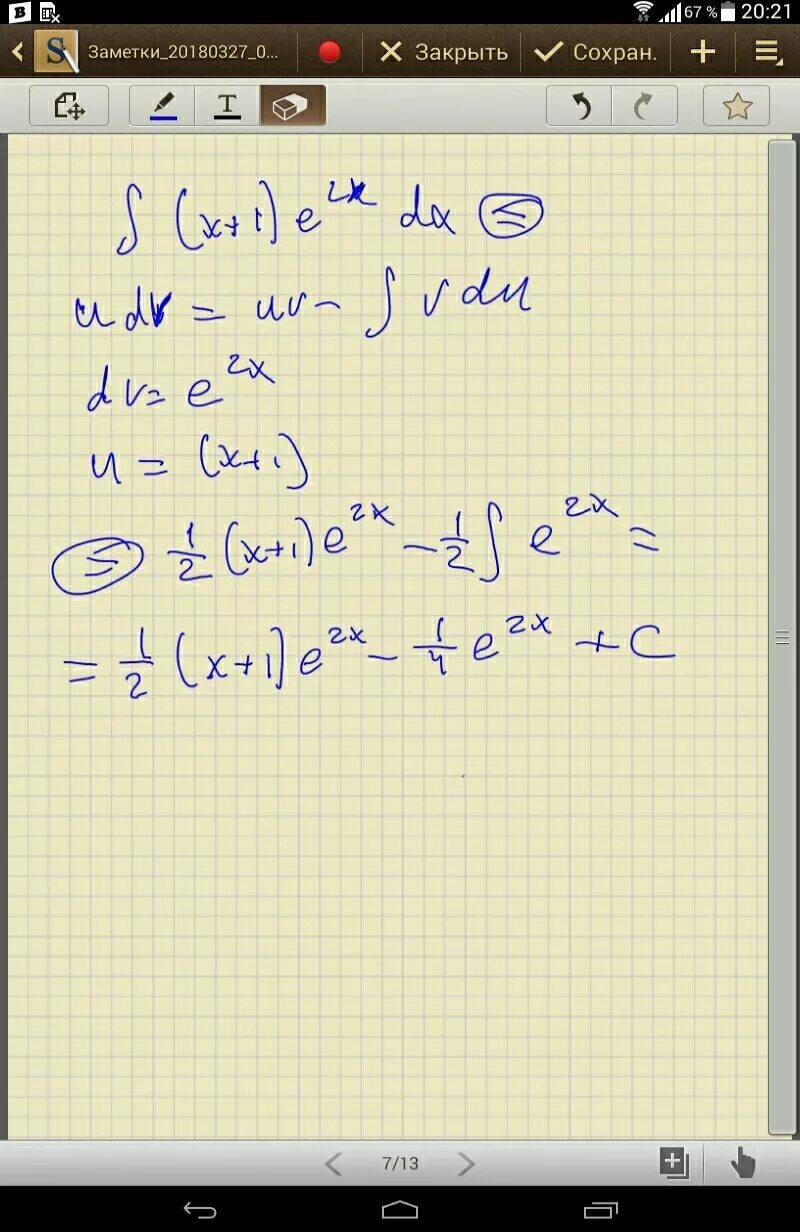 B 67 % 20:21
S Заметки_20180327_0... Закрыть Сохран.
T
∫ (x+1) e^{2x} dx ⊜
u dv = uv - ∫ v du
dv = e^{2x}
u = (x+1)
⊜ 1/2 (x+1) e^{2x} - 1/2 ∫ e^{2x} =
= 1/2 (x+1) e^{2x} - 1/4 e^{2x} + C
7/13